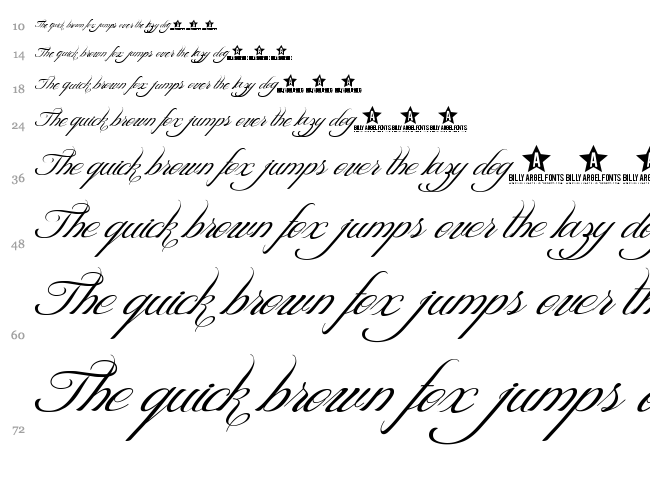 10 The quick brown fox jumps over the lazy dog
14 The quick brown fox jumps over the lazy dog
18 The quick brown fox jumps over the lazy dog
24 The quick brown fox jumps over the lazy dog A A A
BILLY ARGEL FONTS BILLY ARGEL FONTS BILLY ARGEL FONTS
36 The quick brown fox jumps over the lazy dog A A A
BILLY ARGEL FONTS BILLY ARGEL FONTS BILLY ARG
48 The quick brown fox jumps over the lazy do
60 The quick brown fox jumps over th
72 The quick brown fox jumps o